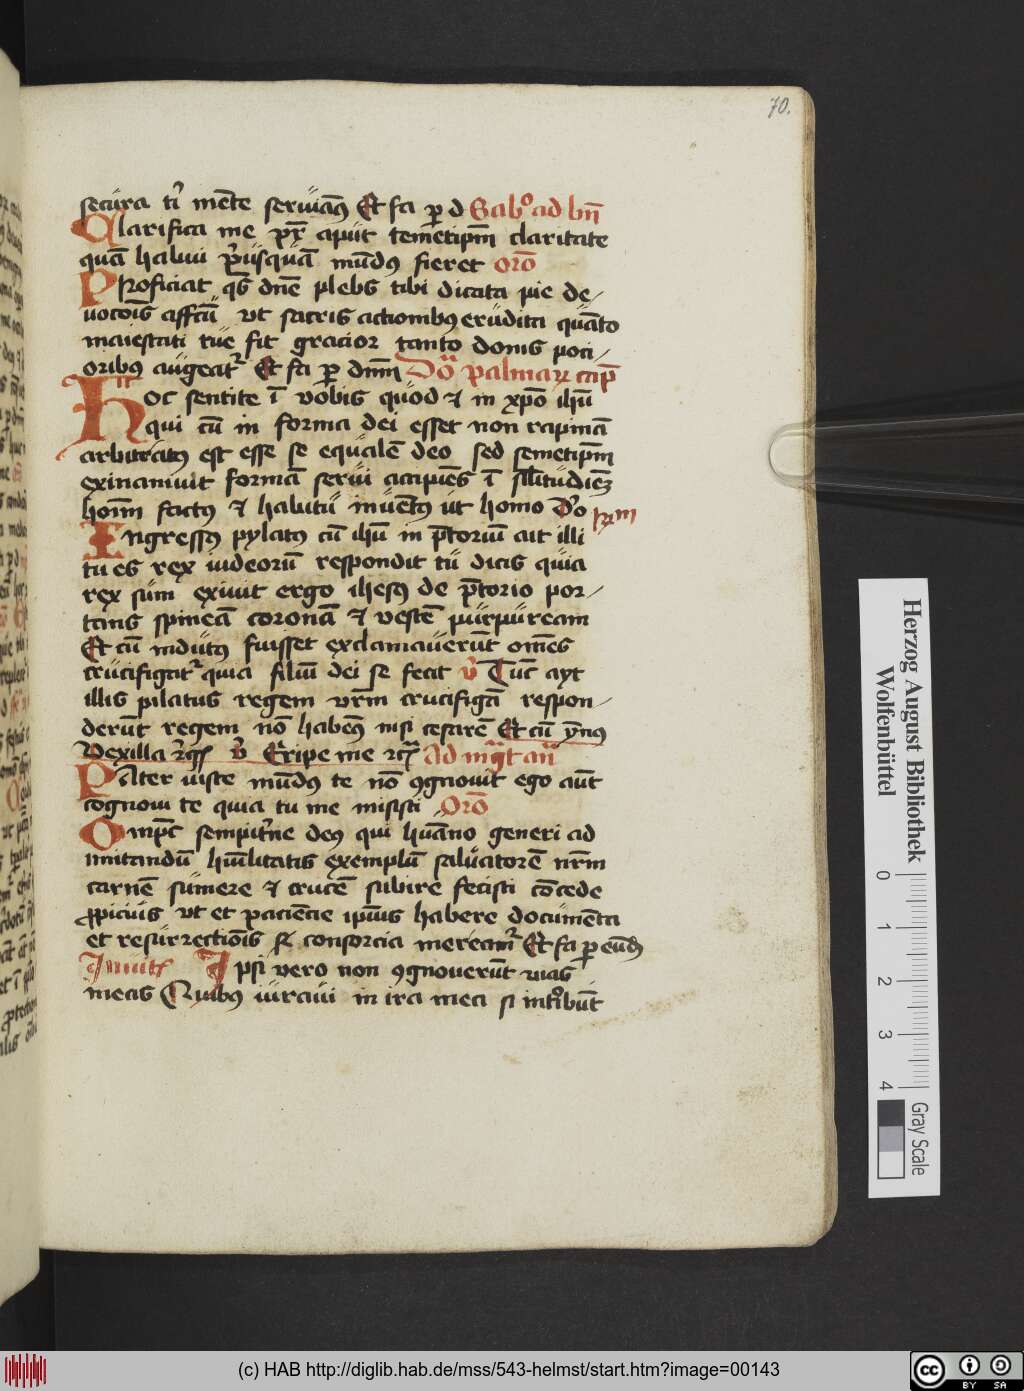 70.
secura ti mēte seruiāꝰ Et fa ꝑ d Sabᵒ ad bn̄
Clarifica me pr̄ aput temetipm̄ claritate
quā habui prꝰusquā mūdꝰ fieret orō
PRoficiat qs̄ dn̄e plebs tibi dicata pie de/
uocōis affcū vt sacris actionibꝰ erudita quāto
maiestati tue fit gracior tanto donis poci/
oribꝰ augeatr Et fa ꝑ dnm̄ Dō palmaꝝ cap̄
HOc sentite ī vobis quod ⁊ in xpō ihū
qui cū in forma dei esset non rapinā
arbitratꝰ est esse se equalē deo sed semetipm̄
exinaniuit formā serui accipiēs ī silitudīeꝫ
hoīm factꝰ ⁊ habitū inuētꝰ ut homo
Ingressꝰ pylatꝰ cū ihū in p̄toriū ait illi
tu es rex iudeorū respondit tu dicis quia
rex sum exiuit ergo ihesꝰ de p̄torio por/
tans spineā coronā ⁊ vestē purpuream
Et cū indutꝰ fuisset exclamauerūt om̄es
crucifigatr quia filiū dei se fecit v̄ Tūc ayt
illis pilatus regem vr̄m crucifigā respon/
derūt regem nō habeꝰ nisi cesarē Et cū ymꝰ
Vexilla v̄ Eripe me Ad mgt an̄
PAter iuste mūdꝰ te nō ꝯgnouit ego aūt
cognoui te quia tu me misisti Orō
Omp̄c sempitne deꝰ qui huāno generi ad
imitandū hūilitatis exemplū saluatorē nr̄m
carnē sumere ⁊ crucē subire fecisti cōcede
ꝓpicius vt et paciēcie ipīus habere documēta
et resurrectiōis consorcia mereamr Et fa ꝑ eund
Inuit Ipsi vero non ꝯgnouerūt uias
meas Quibꝰ iuraui in ira mea si introibūt
Herzog August Bibliothek
Wolfenbüttel
0 1 2 3 4
Gray Scale
(c) HAB http://diglib.hab.de/mss/543-helmst/start.htm?image=00143
cc BY SA